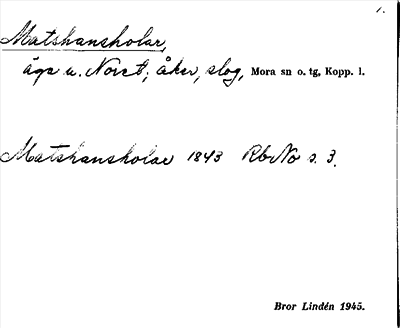 1.
Matshansholar,
ägs u. Noret; åker, slog, Mora sn o. tg, Kopp. l.
Matshansholar 1843 RbNo s. 3.
Bror Lindén 1945.